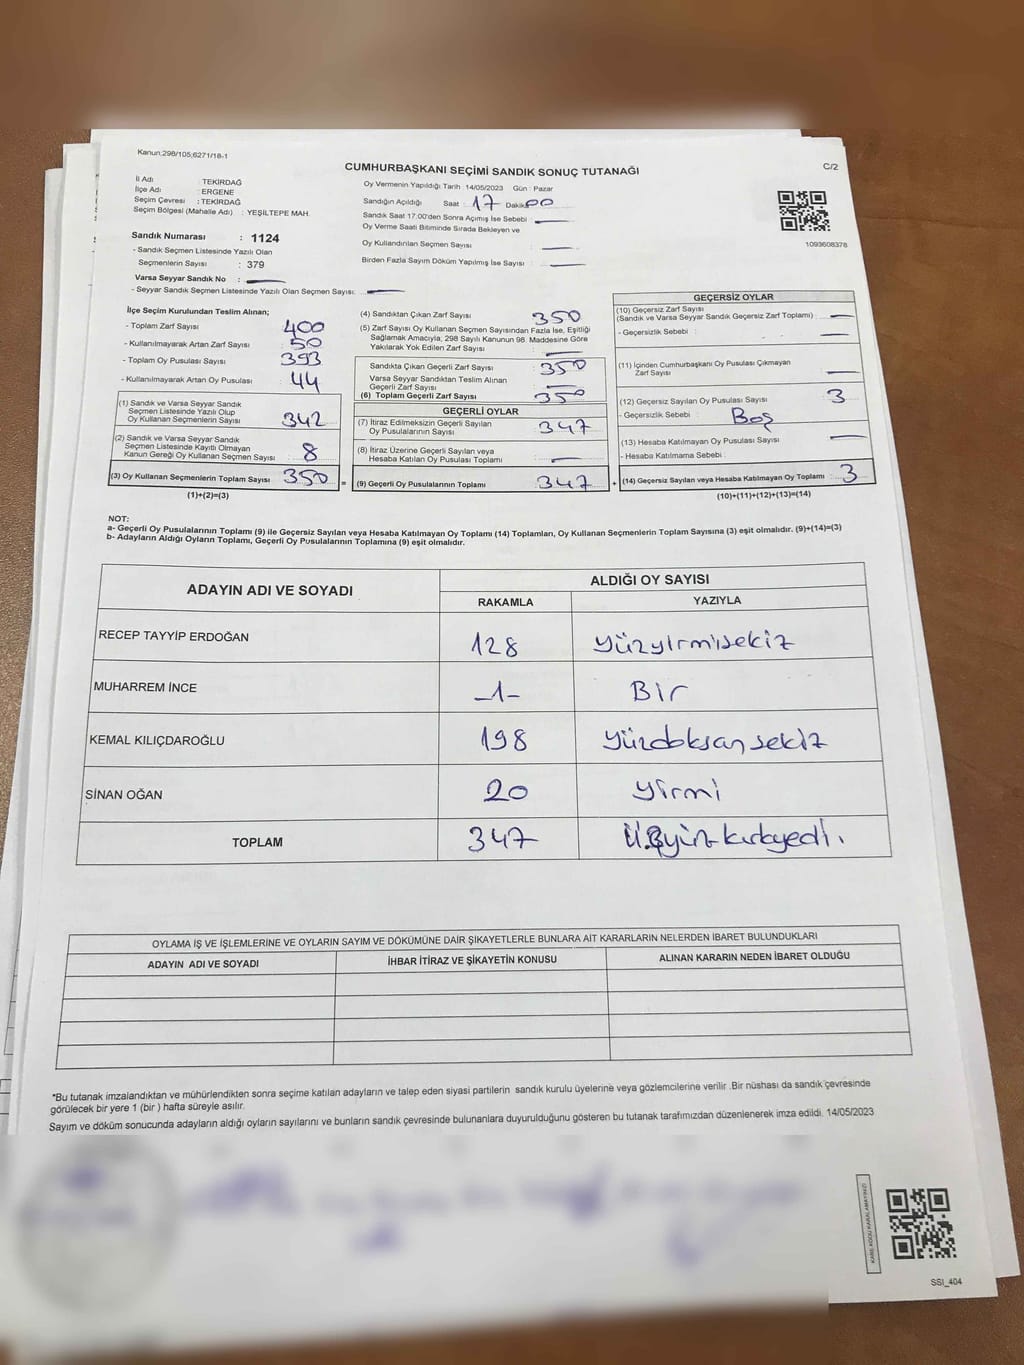 Kanun:298/105;6271/18-1
CUMHURBAŞKANI SEÇİMİ SANDIK SONUÇ TUTANAĞI
C/2
İl Adı : TEKİRDAĞ
İlçe Adı : ERGENE
Seçim Çevresi : TEKİRDAĞ
Seçim Bölgesi (Mahalle Adı) : YEŞİLTEPE MAH.
Sandık Numarası : 1124
- Sandık Seçmen Listesinde Yazılı Olan
Seçmenlerin Sayısı : 379
Varsa Seyyar Sandık No :
- Seyyar Sandık Seçmen Listesinde Yazılı Olan Seçmen Sayısı:
Oy Vermenin Yapıldığı Tarih : 14/05/2023 Gün : Pazar
Sandığın Açıldığı Saat : 17 Dakika 00
Sandık Saat 17:00'den Sonra Açımış İse Sebebi :
Oy Verme Saati Bitiminde Sırada Bekleyen ve
Oy Kullandırılan Seçmen Sayısı :
Birden Fazla Sayım Döküm Yapılmış İse Sayısı :
1093608378
İlçe Seçim Kurulundan Teslim Alınan;
- Toplam Zarf Sayısı : 400
- Kullanılmayarak Artan Zarf Sayısı : 50
- Toplam Oy Pusulası Sayısı : 393
- Kullanılmayarak Artan Oy Pusulası : 44
(1) Sandık ve Varsa Seyyar Sandık
Seçmen Listesinde Yazılı Olup
Oy Kullanan Seçmenlerin Sayısı : 342
(2) Sandık ve Varsa Seyyar Sandık
Seçmen Listesinde Kayıtlı Olmayan
Kanun Gereği Oy Kullanan Seçmen Sayısı : 8
(3) Oy Kullanan Seçmenlerin Toplam Sayısı : 350
(1)+(2)=(3)
(4) Sandıktan Çıkan Zarf Sayısı : 350
(5) Zarf Sayısı Oy Kullanan Seçmen Sayısından Fazla İse, Eşitliği
Sağlamak Amacıyla; 298 Sayılı Kanunun 98. Maddesine Göre
Yakılarak Yok Edilen Zarf Sayısı :
Sandıkta Çıkan Geçerli Zarf Sayısı : 350
Varsa Seyyar Sandıktan Teslim Alınan
Geçerli Zarf Sayısı :
(6) Toplam Geçerli Zarf Sayısı : 350
GEÇERLİ OYLAR
(7) İtiraz Edilmeksizin Geçerli Sayılan
Oy Pusulalarının Sayısı : 347
(8) İtiraz Üzerine Geçerli Sayılan veya
Hesaba Katılan Oy Pusulası Toplamı :
= (9) Geçerli Oy Pusulalarının Toplamı : 347
GEÇERSİZ OYLAR
(10) Geçersiz Zarf Sayısı
(Sandık ve Varsa Seyyar Sandık Geçersiz Zarf Toplamı) :
- Geçersizlik Sebebi :
(11) İçinden Cumhurbaşkanı Oy Pusulası Çıkmayan
Zarf Sayısı :
(12) Geçersiz Sayılan Oy Pusulası Sayısı : 3
- Geçersizlik Sebebi : Boş
(13) Hesaba Katılmayan Oy Pusulası Sayısı :
- Hesaba Katılmama Sebebi :
+ (14) Geçersiz Sayılan veya Hesaba Katılmayan Oy Toplamı : 3
(10)+(11)+(12)+(13)=(14)
NOT:
a- Geçerli Oy Pusulalarının Toplamı (9) ile Geçersiz Sayılan veya Hesaba Katılmayan Oy Toplamı (14) Toplamları, Oy Kullanan Seçmenlerin Toplam Sayısına (3) eşit olmalıdır. (9)+(14)=(3)
b- Adayların Aldığı Oyların Toplamı, Geçerli Oy Pusulalarının Toplamına (9) eşit olmalıdır.
ADAYIN ADI VE SOYADI ALDIĞI OY SAYISI
RAKAMLA YAZIYLA
RECEP TAYYİP ERDOĞAN 128 Yüzyirmisekiz
MUHARREM İNCE -1- Bir
KEMAL KILIÇDAROĞLU 198 Yüzdoksansekiz
SİNAN OĞAN 20 Yirmi
TOPLAM 347 Üçyüzkırkyedi.
OYLAMA İŞ VE İŞLEMLERİNE VE OYLARIN SAYIM VE DÖKÜMÜNE DAİR ŞİKAYETLERLE BUNLARA AİT KARARLARIN NELERDEN İBARET BULUNDUKLARI
ADAYIN ADI VE SOYADI İHBAR İTİRAZ VE ŞİKAYETİN KONUSU ALINAN KARARIN NEDEN İBARET OLDUĞU
*Bu tutanak imzalandıktan ve mühürlendikten sonra seçime katılan adayların ve talep eden siyasi partilerin sandık kurulu üyelerine veya gözlemcilerine verilir .Bir nüshası da sandık çevresinde
görülecek bir yere 1 (bir ) hafta süreyle asılır.
Sayım ve döküm sonucunda adayların aldığı oyların sayılarını ve bunların sandık çevresinde bulunanlara duyurulduğunu gösteren bu tutanak tarafımızdan düzenlenerek imza edildi. 14/05/2023
KARE KODU KARALAMAYINIZ!
SSI_404